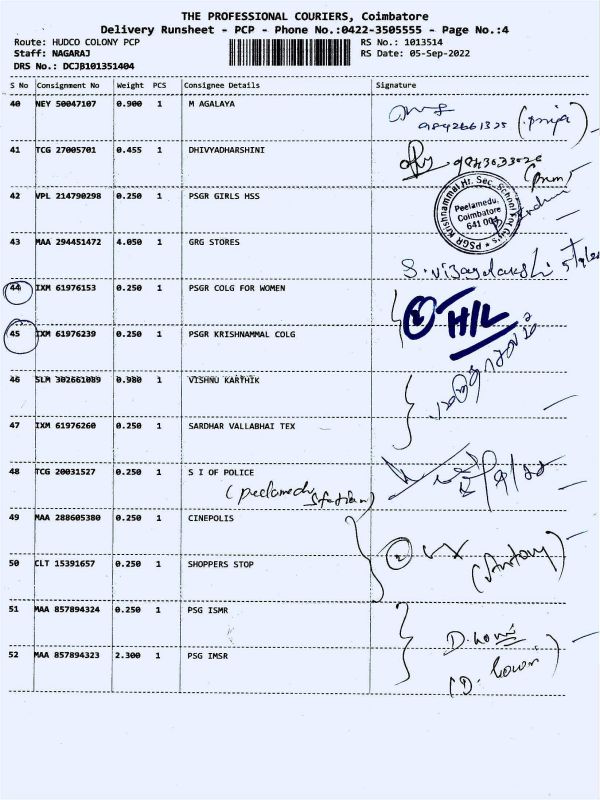 THE PROFESSIONAL COURIERS, Coimbatore
Delivery Runsheet - PCP - Phone No.:0422-3505555 - Page No.:4
Route: HUDCO COLONY PCP RS No.: 1013514
Staff: NAGARAJ RS Date: 05-Sep-2022
DRS No.: DCJB101351404
S No Consignment No Weight PCS Consignee Details Signature
40 NEY 50047107 0.900 1 M AGALAYA
9842661325 (priya)
41 TCG 27005701 0.455 1 DHIVYADHARSHINI
42 VPL 214790298 0.250 1 PSGR GIRLS HSS
PSGR Krishnammal Hr. Sec. School For Girls
Peelamedu,
Coimbatore
641 004
43 MAA 294451472 4.050 1 GRG STORES
44 IXM 61976153 0.250 1 PSGR COLG FOR WOMEN
2 H/L
45 IXM 61976239 0.250 1 PSGR KRISHNAMMAL COLG
46 SLM 302661089 0.980 1 VISHNU KARTHIK
47 IXM 61976260 0.250 1 SARDHAR VALLABHAI TEX
48 TCG 20031527 0.250 1 S I OF POLICE
(peelamedu station)
49 MAA 288605380 0.250 1 CINEPOLIS
2
50 CLT 15391657 0.250 1 SHOPPERS STOP
(Antony)
51 MAA 857894324 0.250 1 PSG ISMR
52 MAA 857894323 2.300 1 PSG IMSR